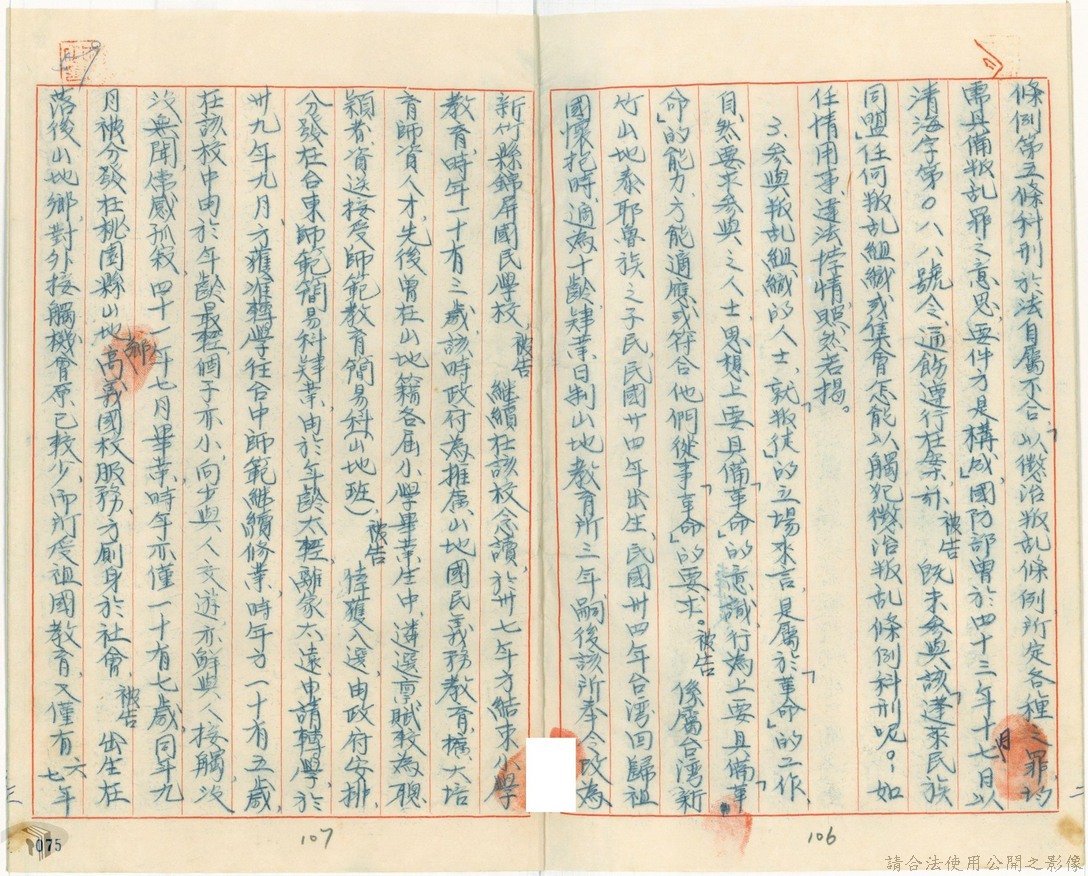 條例第五條科刑於法自屬不合「以懲治叛乱條例所定各種之罪均
需具備叛乱罪之意思要件才是構成」國防部曾於四十三年十七月日以
清海字第〇八八號令通飭遵行在案,
被告
既未參與該「蓬萊民族
同盟」任何叛乱組織或集會怎能以觸犯懲治叛乱條例科刑呢。如
任情用事違法悖情照然若揭。
3.參與叛乱組織的人士,就「叛徒」的立場來言,是屬於「革命」的工作,
自然要求參與之人士,思想上要具備「革命」的意識,行為上要具備「革
命」的能力,方能適應或符合他們從事「革命」的要求。
被告
係屬台湾新
竹山地泰耶魯族之子民,民國廿四年出生,民國卅四年台湾回歸祖
國懷抱時,適為十齡,肄業日制山地教育所三年,嗣後該所奉令改為
新竹縣錦屏國民學校,
被告
繼續在該校念讀,於卅七年方結束小學
教育,時年一十有三歲,該時政府為推廣山地國民義務教育,擴大培
育師資人才,先後曾在山地籍各屆小學畢業生中,遴選稟賦較為聰
穎者資送接受師範教育簡易科(山地班),
被告
倖獲入選,由政府安排
分發在台東師範簡易科肄業,由於年齡太輕,離家太遠,申請轉學,於
卅九年九月,方獲准轉學往台中師範繼續修業,時年方一十有五歲,
在該校中由於年齡最輕個子亦小,向少與人交遊,亦鮮與人接觸,次
沒無聞,常感孤寂,四十一年七月畢業,時年亦僅一十有七歲,同年九
月被分發在桃園縣山地鄉高義國校服務,方廁身於社會,
被告
出生在
落後山地鄉,對外接觸機會原已較少,而所受祖國教育,又僅有六七年
106
107
075
請合法使用公開之影像